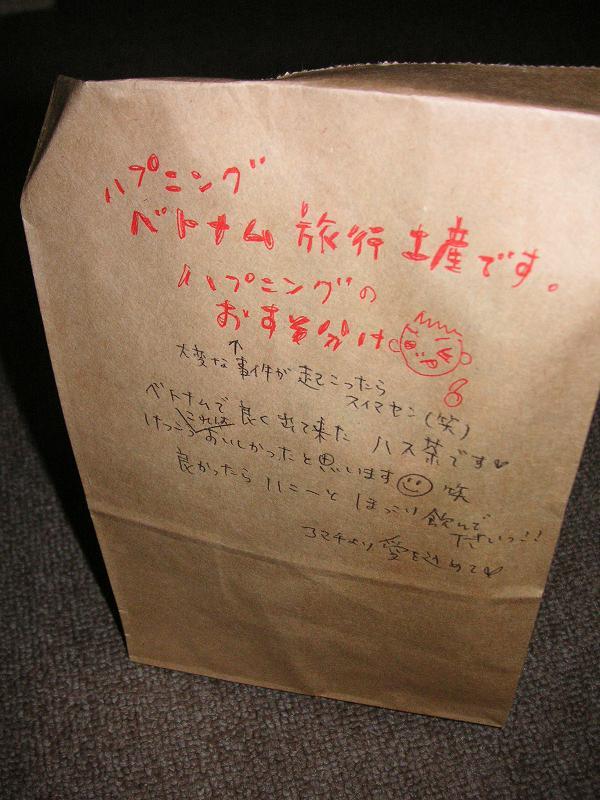 ハプニング
ベトナム 旅行 土産です。
ハプニングの
おすそ分け
↑
大変な事件が起こったら
スイマセン(笑)
ベトナムで良く出て来た ハス茶です♥
これは
けっこうおいしかったと思います☺笑
良かったら ハニーと ほっこり 飲んで
下さいっ!!
コマチより 愛を込めて♥